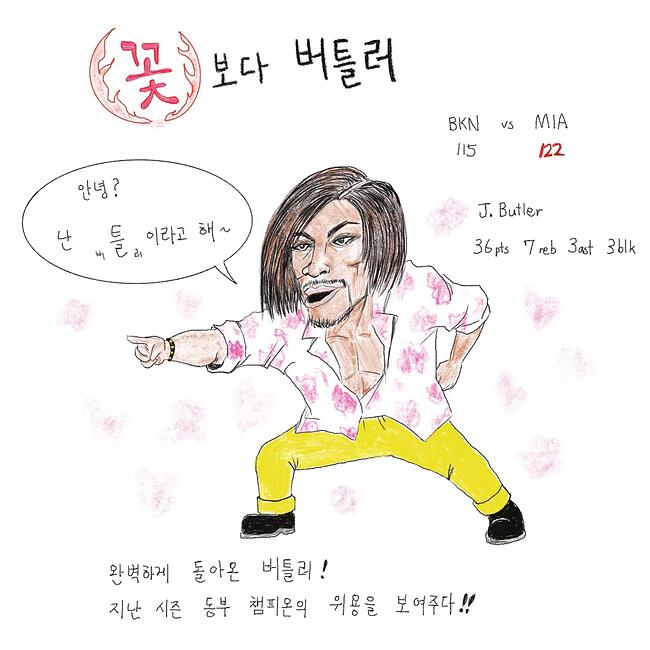 꽃보다 버틀러
BKN vs MIA
115 122
안녕?
난 버틀러이라고 해~
J. Butler
36pts 7reb 3ast 3blk
완벽하게 돌아온 버틀러!
지난 시즌 동부 챔피온의 위용을 보여주다!!